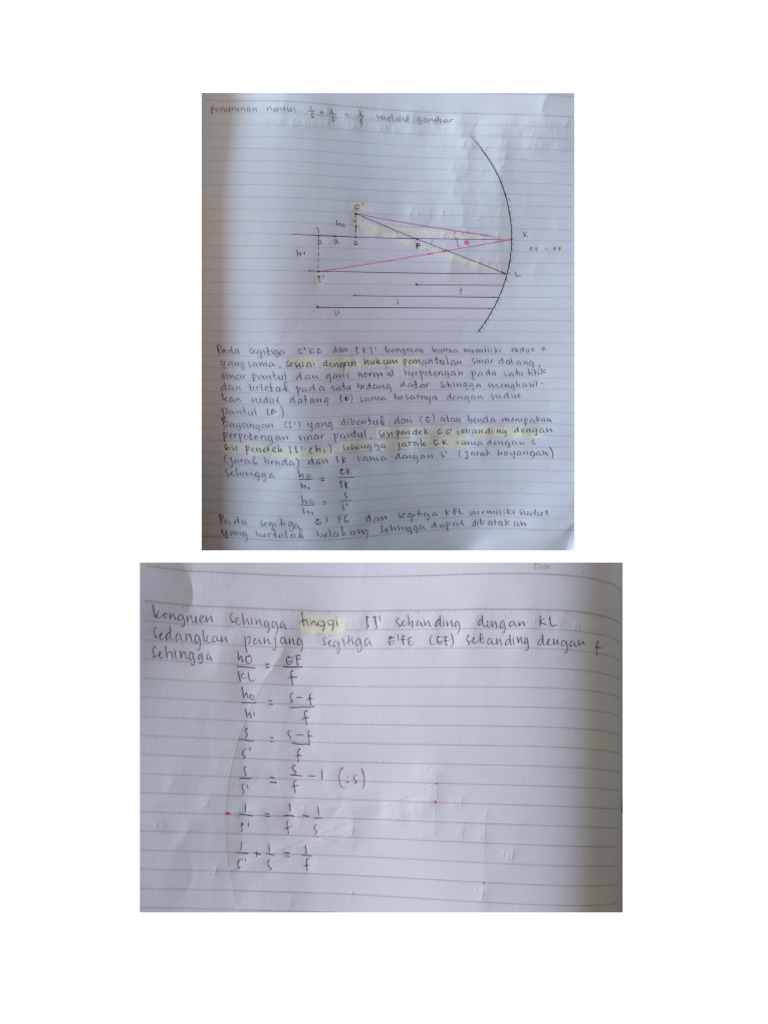 Penurunan rumus 1/s + 1/s' = 1/f melalui gambar
E'
ho
I
R
E
F
K
hi
I'
L
f
s
s'
Pada segitiga E'KE dan IKI' kongruen karena memiliki sudut
yang sama, sesuai dengan hukum pemantulan sinar datang,
sinar pantul dan garis normal berpotongan pada satu titik
dan terletak pada satu bidang datar sehingga menghasil-
kan sudut datang (θ) sama besarnya dengan sudut
pantul (θ).
Bayangan (I') yang dibentuk dari (E) atau benda merupakan
perpotongan sinar pantul. Sisi pendek EE' sebanding dengan
sisi pendek II' (hi) sehingga jarak EK sama dengan s
(jarak benda) dan IK sama dengan s' (jarak bayangan)
sehingga ho/hi = EK/IK
ho/hi = s/s'
Pada segitiga E'FE dan segitiga KFL memiliki sudut
yang bertolak belakang sehingga dapat dikatakan
Date
kongruen sehingga tinggi II' sebanding dengan KL
sedangkan panjang segitiga E'FE (EF) sebanding dengan f
sehingga ho/KL = EF/f
ho/hi = s-f/f
s/s' = s-f/f
s/s' = s/f - 1 (:s)
1/s' = 1/f - 1/s
1/s' + 1/s = 1/f